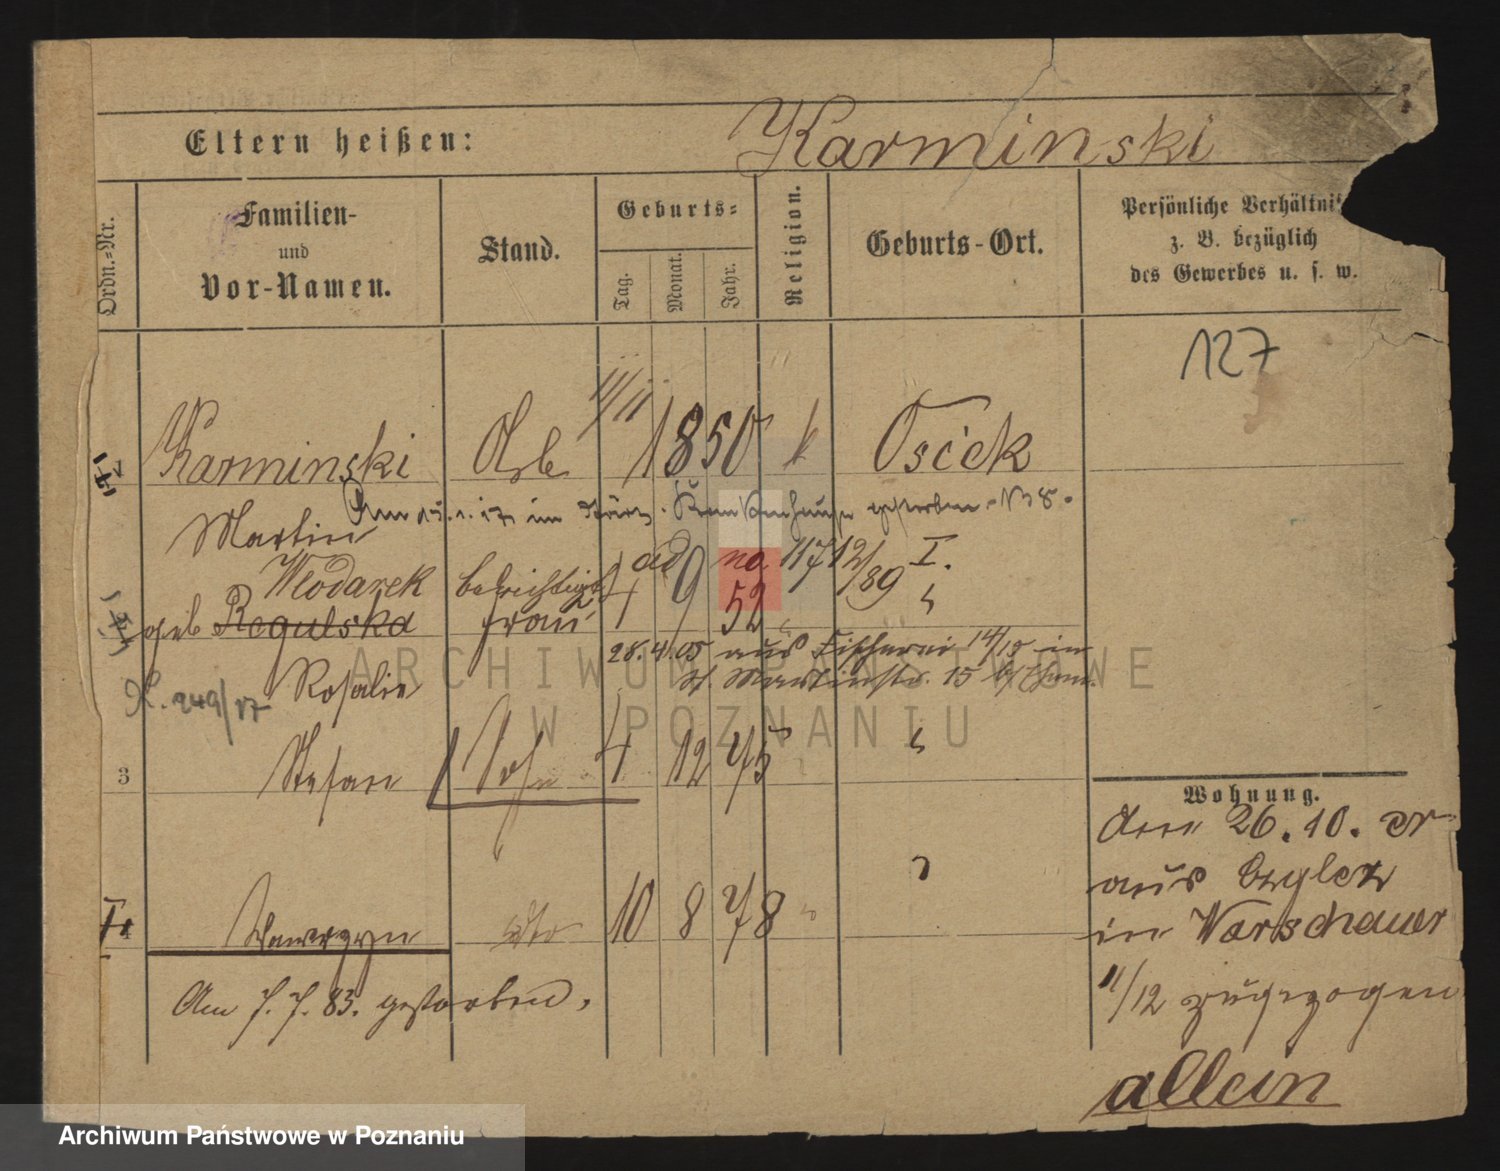 Eltern heißen: Karminski
Ordn.-Nr.
Familien-
und
Vor-Namen.
Stand.
Geburts-
Tag.
Monat.
Jahr.
Religion.
Geburts-Ort.
Persönliche Verhältni
z. B. bezüglich
des Gewerbes u. s. w.
127
Karminski Arb 11/11 1850 k Osiek
Martin
Am 15.1.17 im Krankenhause gestorben
ad no 117 12/89 I.
Wlodarek berichtigt
geb Regulska Frau 1 9 52
28.4.05 aus Fischerei 14/15 in
St. Martinstr. 15
Rosalie
R. 249/17
3 Stefan Sohn 1 12 75
Wawrzyn dto 10 8 78
Am 7.7.83. gestorben.
Wohnung.
den 26.10. er
aus
in Warschauer
11/12 zugezogen
allein
ARCHIWUM PAŃSTWOWE
W POZNANIU
Archiwum Państwowe w Poznaniu